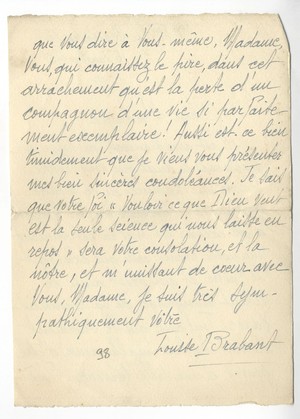 que vous dire à Vous-même, Madame,
Vous, qui connaissez le pire, dans cet
arrachement qu'est la perte d'un
compagnon d'une vie si parfaite-
ment exemplaire! Aussi est-ce bien
timidement que je viens vous présenter
mes bien sincères condoléances. Je sais
que notre foi « Vouloir ce que Dieu veut
est la seule science qui nous laisse en
repos » sera votre consolation, et la
nôtre, et m'unissant de cœur avec
Vous, Madame, je suis très sym-
pathiquement vôtre
Louise Brabant
98